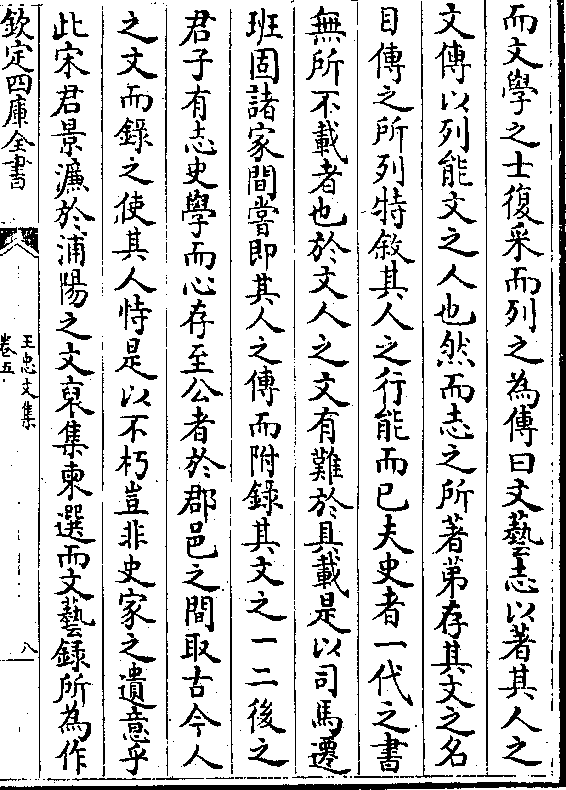 而文學之士復采而列之為傳曰文藝志以著其人之
文傳以列能文之人也然而志之所著第存其文之名
目傳之所列特敘其人之行能而已夫史者一代之書
無所不載者也於文人之文有難於具載是以司馬遷
班固諸家間嘗即其人之傳而附錄其文之一二後之
君子有志史學而心存至公者於郡邑之間取古今人
之文而錄之使其人恃是以不朽豈非史家之遺意乎
此宋君景濂於浦陽之文裒集柬選而文藝錄所為作
欽定四庫全書
王忠文集
卷五
八